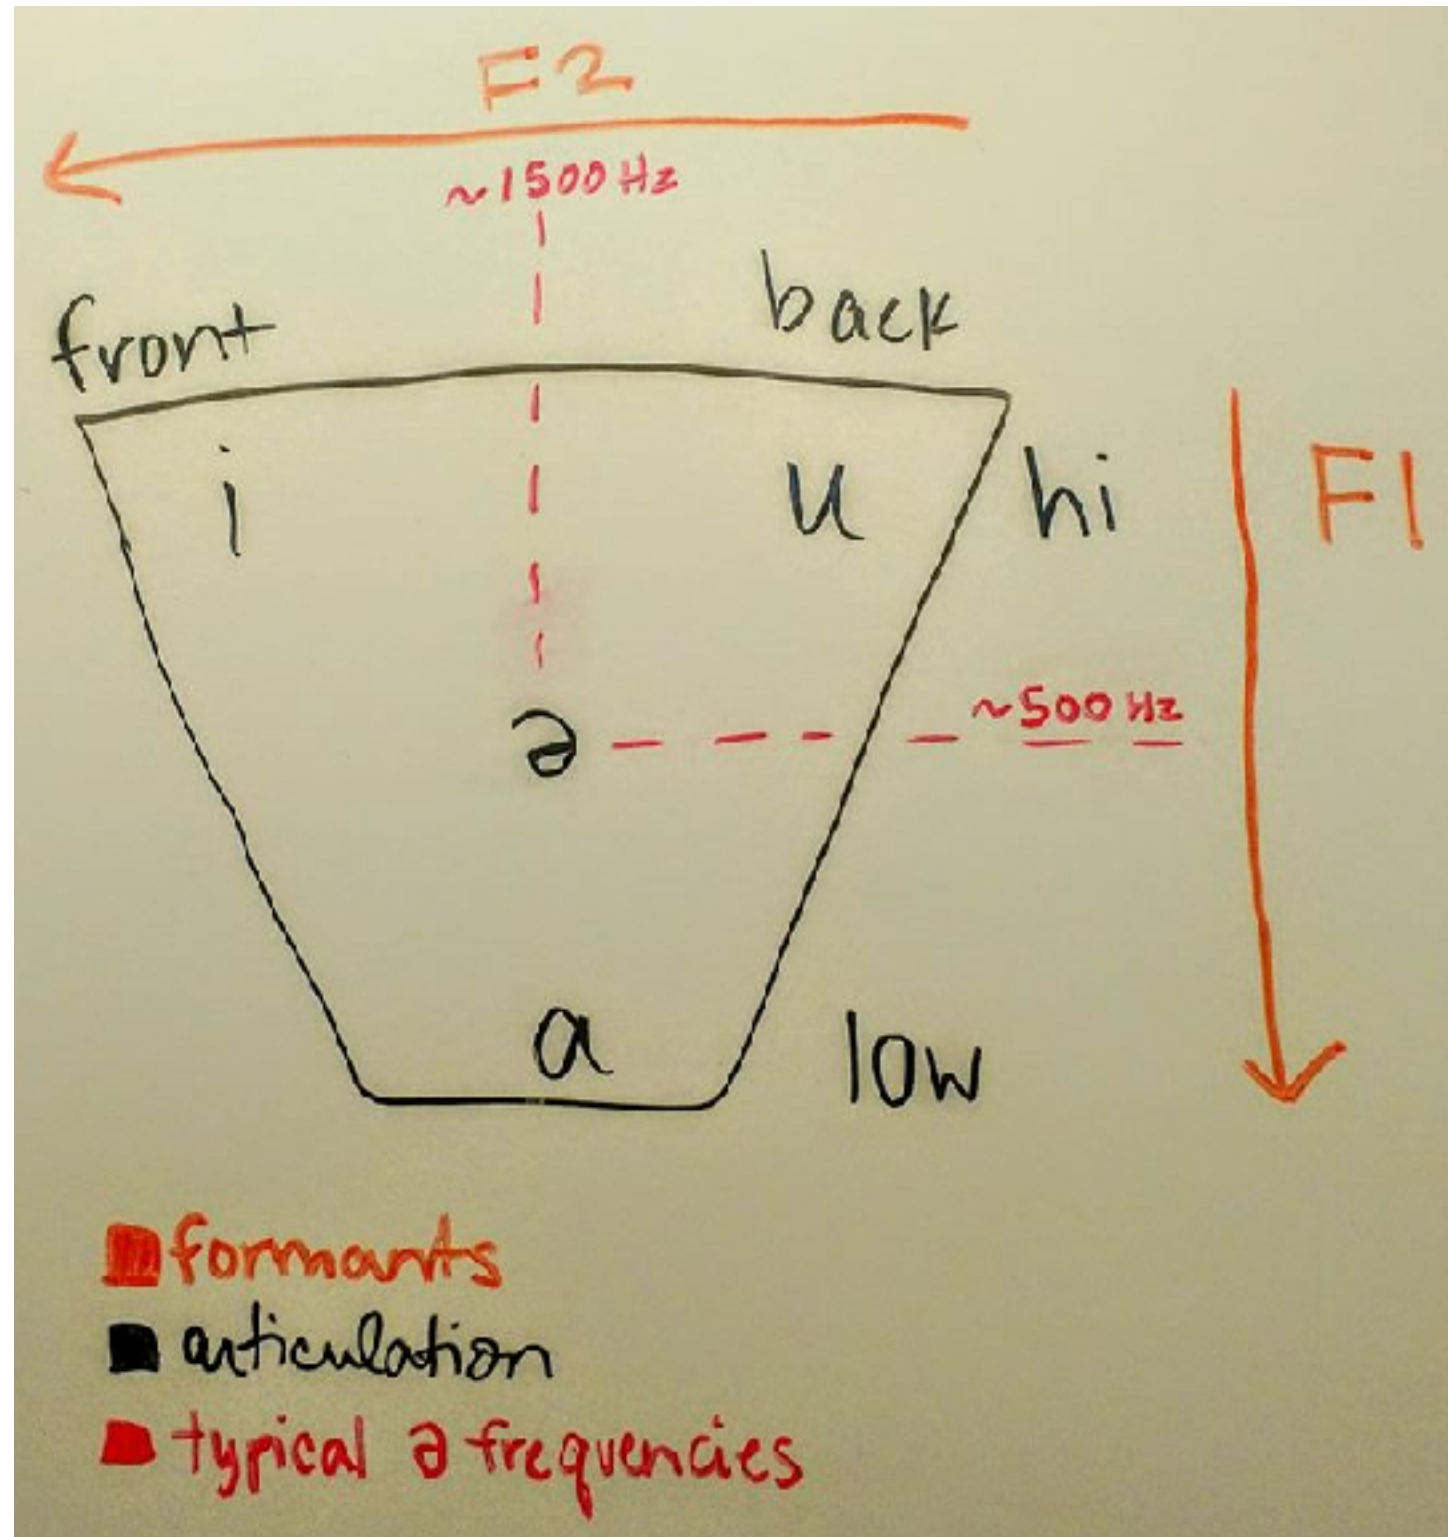 F2
~1500 Hz
front
back
i
u
hi
F1
ə
~500 Hz
a
low
formants
articulation
typical ə frequencies